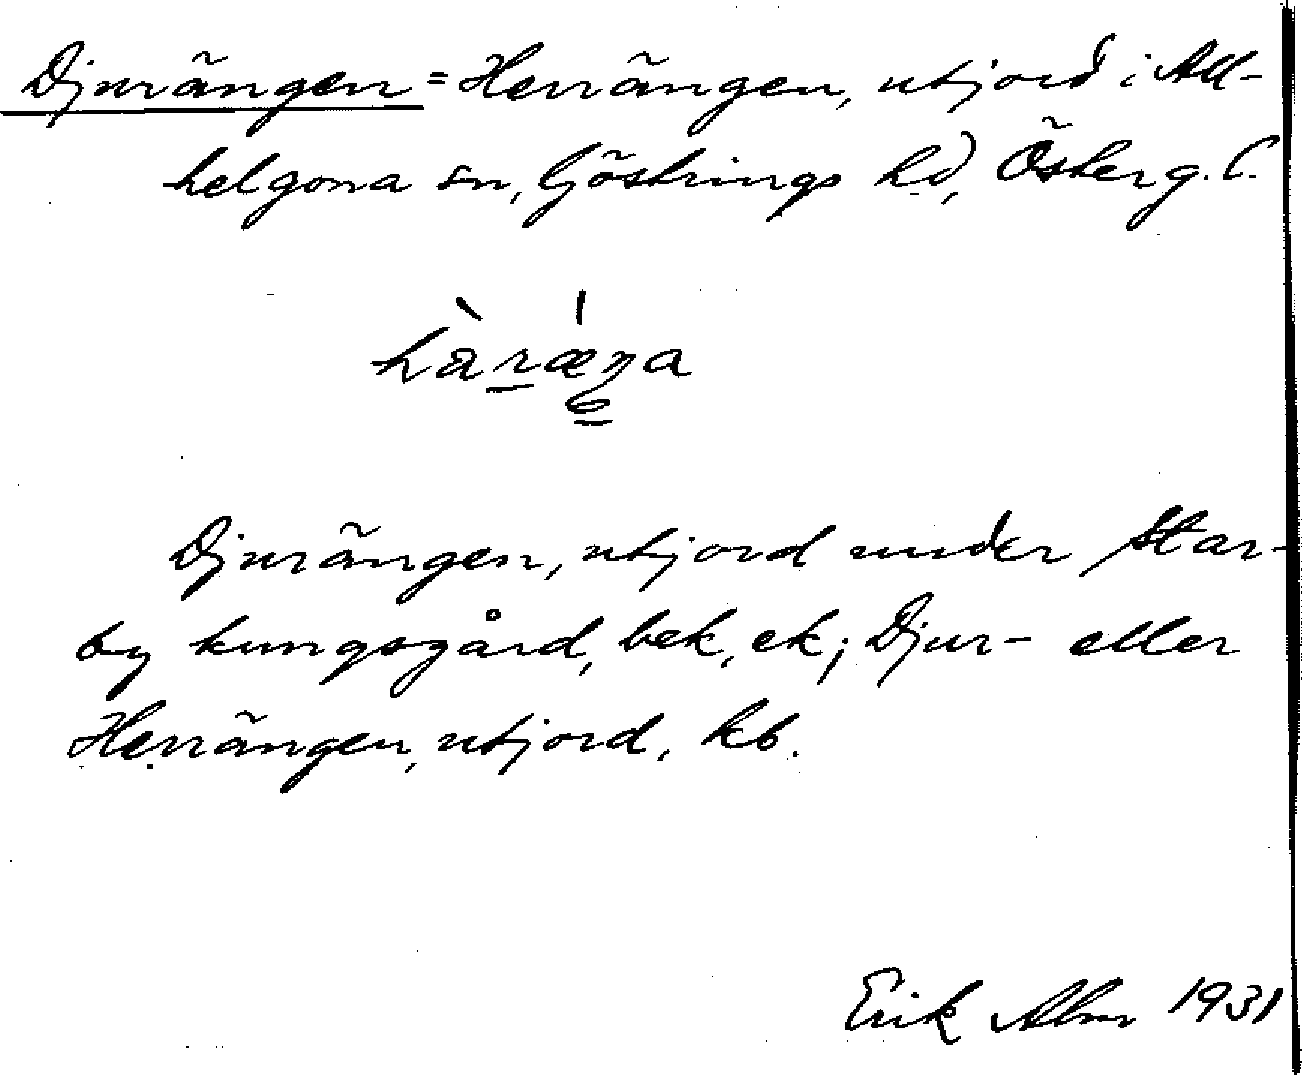 Djurängen = Herrängen, utjord i All-
helgona sn, Göstrings hd, Österg. l.
hàræŋa
Djurängen, utjord under Star-
by kungsgård, bek, ek; Djur- eller
Herrängen, utjord, kb.
Erik Abm 1931